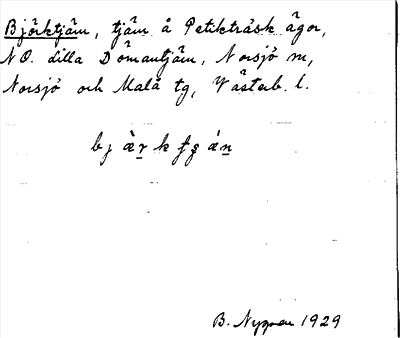 Björktjärn, tjärn å Petikträsk ägor,
NO. Lilla Dömantjärn, Norsjö sn,
Norsjö och Malå tg, Västerb. l.
B. 1929